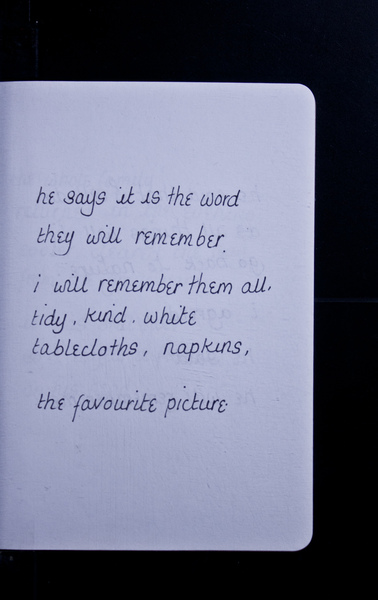 he says it is the word
they will remember.
i will remember them all.
tidy, kind. white
tablecloths, napkins,
the favourite picture